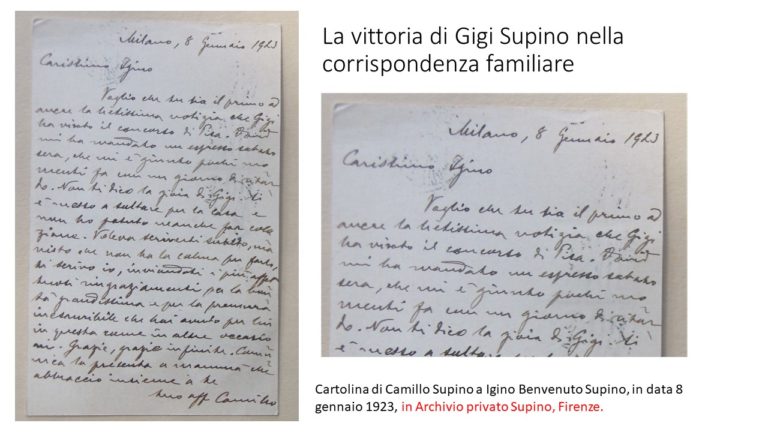 La vittoria di Gigi Supino nella
corrispondenza familiare
Milano, 8 Gennaio 1923
Carissimo Igino
Voglio che tu sia il primo ad
avere la lietissima notizia che Gigi
ha vinto il concorso di Pisa.
mi ha mandato un espresso sabato
sera, che mi è giunto pochi mo
menti fa con un giorno di ritar
do. Non ti dico la gioia di Gigi. Si
è messo a saltare per la casa e
non ho potuto neanche far cola
zione. Voleva scriverti subito, ma
visto che non ha la calma per farlo,
ti scrivo io, inviandoti i più affet
tuosi ringraziamenti per la bon
tà grandissima e per la premura
che hai avuto per lui
in questa come in altre occasio
ni. Grazie, grazie infinite. Comu
nica la presente a mamma che
abbraccio insieme a te
tuo aff Camillo
Milano, 8 Gennaio 1923
Carissimo Igino
Voglio che tu sia il primo ad
avere la lietissima notizia che Gigi
ha vinto il concorso di Pisa.
mi ha mandato un espresso sabato
sera, che mi è giunto pochi mo
menti fa con un giorno di ritar
do. Non ti dico la gioia di Gigi. Si
è messo a saltare
Cartolina di Camillo Supino a Igino Benvenuto Supino, in data 8
gennaio 1923, in Archivio privato Supino, Firenze.